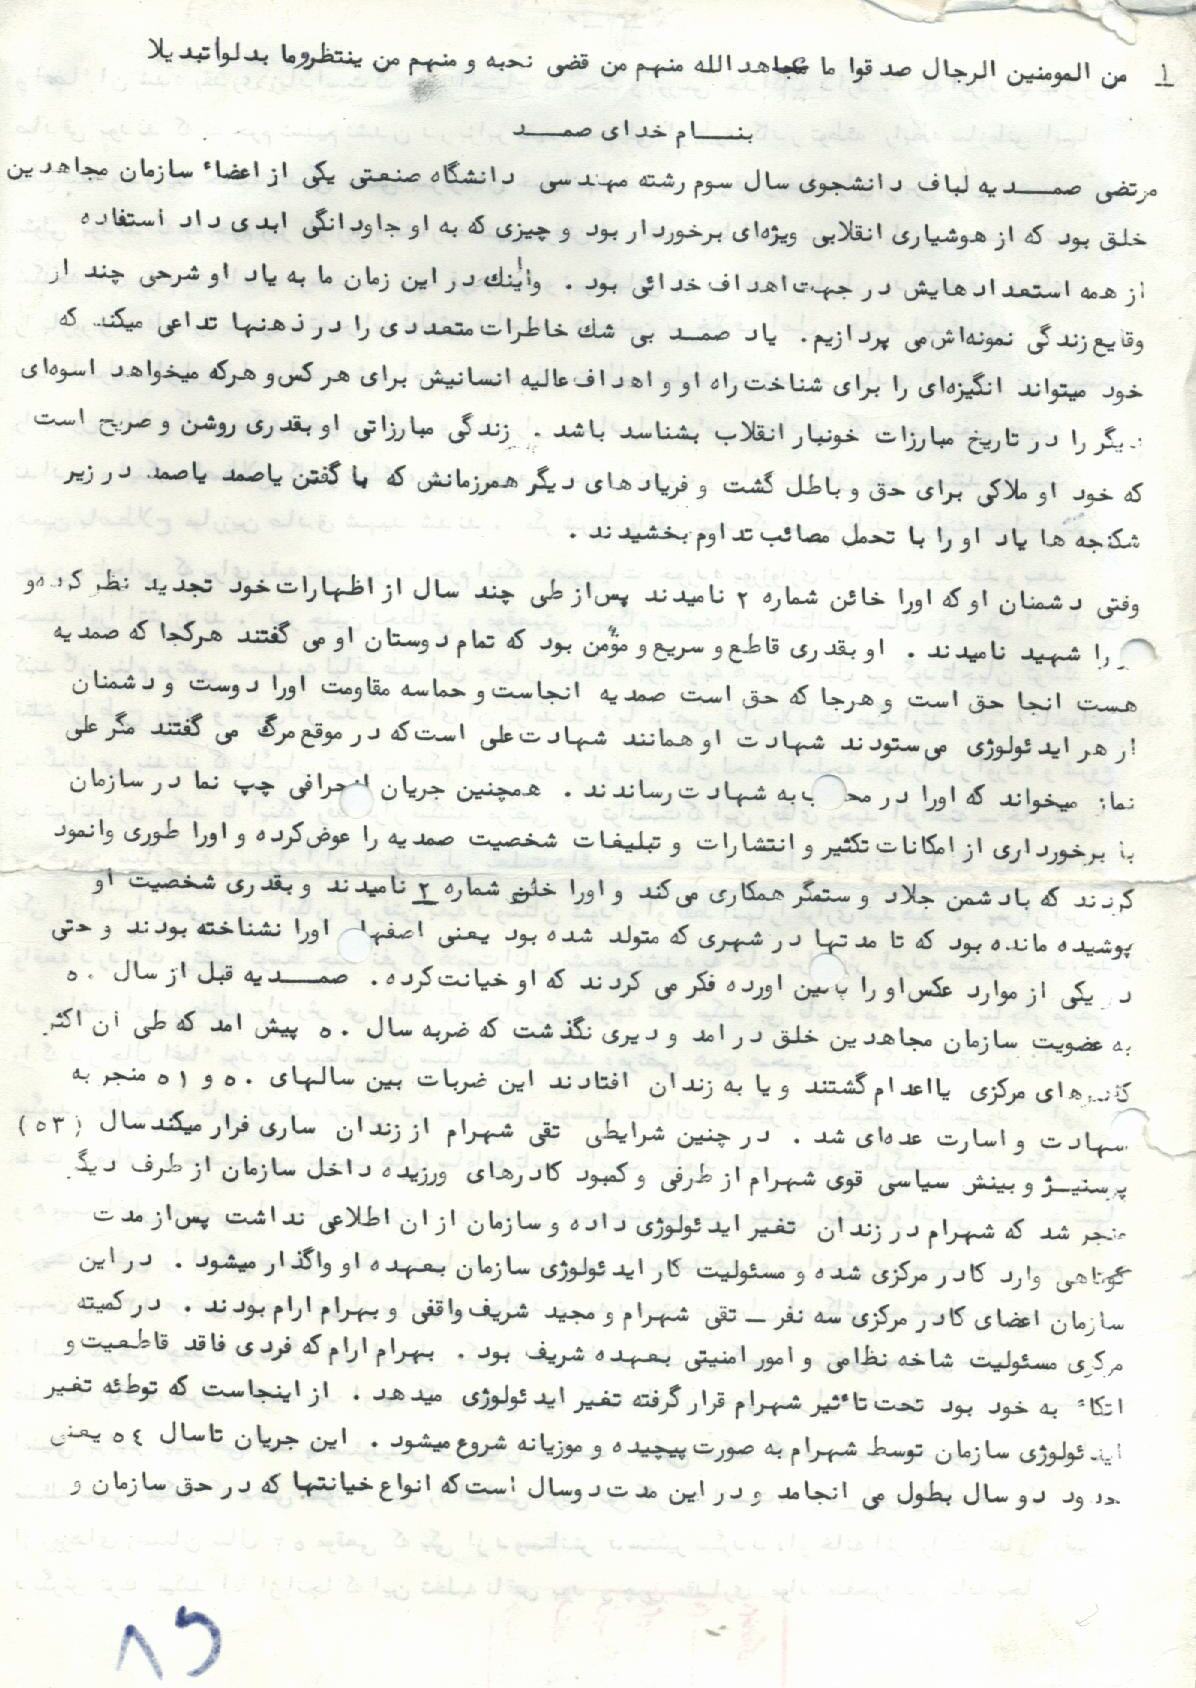 ۱ من المومنین الرجال صدقوا ما عاهد الله منهم من قضی نحبه و منهم من ینتظروما بدلوأتبدیلا
بنـــام خدای صمـــد
مرتضی صمـــدیه لباف دانشجوی سال سوم رشته مهندسی دانشگاه صنعتی یکی از اعضاء سازمان مجاهدین
خلق بود که از هوشیاری انقلابی ویژه‌ای برخوردار بود و چیزی که به او جاودانگی ابدی داد استفاده
از همه استعدادهایش در جهت اهداف خدائی بود . واینك در این زمان ما به یاد او شرحی چند از
وقایع زندگی نمونه‌اش می پردازیم. یاد صمـد بی شك خاطرات متعددی را در ذهنها تداعی میکند که
خود میتواند انگیزه‌ای را برای شناخت راه او و اهداف عالیه انسانیش برای هر کس و هرکه میخواهد اسوه‌ای
دیگر را در تاریخ مبارزات خونبار انقلاب بشناسد باشد . زندگی مبارزاتی او بقدری روشن و صریح است
که خود او ملاکی برای حق و باطل گشت و فریادهای دیگر همرزمانش که با گفتن یاصمد یاصمد در زیر
شکنجه ها یاد او را با تحمل مصائب تداوم بخشیدند .
وقتی دشمنان او که اورا خائن شماره ۲ نامیدند پس‌از طی چند سال از اظهارات خود تجدید نظر کرده و
را شهید نامیدند . او بقدری قاطع و سریع و مؤمن بود که تمام دوستان او می گفتند هرکجا که صمدیه
هست انجا حق است و هرجا که حق است صمدیه انجاست و حماسه مقاومت اورا دوست و دشمنان
از هر ایدئولوژی می‌ستودند شهادت او همانند شهادت علی است‌که در موقع مرگ می گفتند مگر علی
نماز میخواند که اورا در محراب به شهادت رساندند . همچنین جریان انحرافی چپ نما در سازمان
با برخورداری از امکانات تکثیر و انتشارات و تبلیغات شخصیت صمدیه را عوض‌کرده و اورا طوری وانمود
کردند که بادشمن جلاد و ستمگر همکاری می‌کند و اورا خائن شماره ۲ نامیدند و بقدری شخصیت او
پوشیده مانده بود که تا مدتها در شهری که متولد شده بود یعنی اصفهان اورا نشناخته بودند و حتی
در یکی از موارد عکس‌او را پائین اورده فکر می کردند که او خیانت‌کرده . صمـــدیه قبل از سال ۵۰
به عضویت سازمان مجاهدین خلق در امد و دیری نگذشت که ضربه سال ۵۰ پیش امد که طی ان اکثر
کادرهای مرکزی یااعدام گشتند و یا به زندان افتادند این ضربات بین سالهای ۵۰ و ۵۱ منجر به
شهادت و اسارت عده‌ای شد . در چنین شرایطی تقی شهرام از زندان ساری فرار میکند سال (۵۳)
پرستیـژ و بینش سیاسی قوی شهرام از طرفی و کمبود کادرهای ورزیده داخل سازمان از طرف دیگر
منجر شد که شهرام در زندان تغیر ایدئولوژی داده و سازمان از ان اطلاعی نداشت پس‌از مدت
کوتاهی وارد کادر مرکزی شده و مسئولیت کار ایدئولوژی سازمان بعهده او واگذار میشود . در این
سازمان اعضای کادر مرکزی سه نفر ــ تقی شهرام و مجید شریف واقفی و بهرام ارام بودند . در کمیته
مرکزی مسئولیت شاخه نظامی و امور امنیتی بعهده شریف بود . بهرام ارام که فردی فاقد قاطعیت و
اتکاء به خود بود تحت تاءثیر شهرام قرار گرفته تغیر ایدئولوژی میدهد . از اینجاست که توطئه تغیر
ایدئولوژی سازمان توسط شهرام به صورت پیچیده و موزیانه شروع میشود . این جریان تاسال ۵٤ یعنی
حدود دو سال بطول می انجامد و در این مدت دوسال است‌که انواع خیانتها که در حق سازمان و